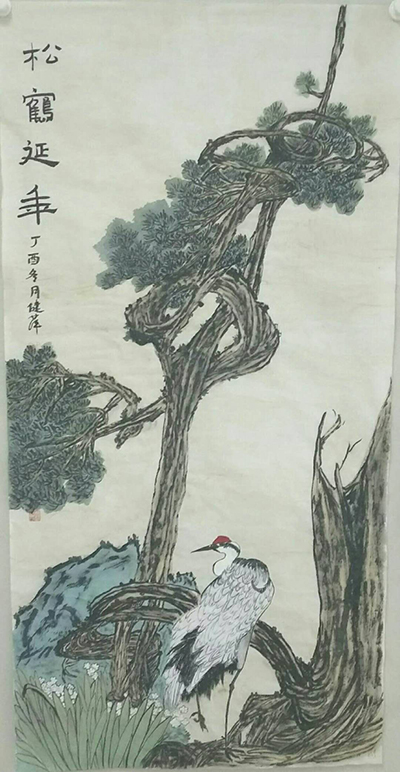 松鶴延年
丁酉冬月健萍